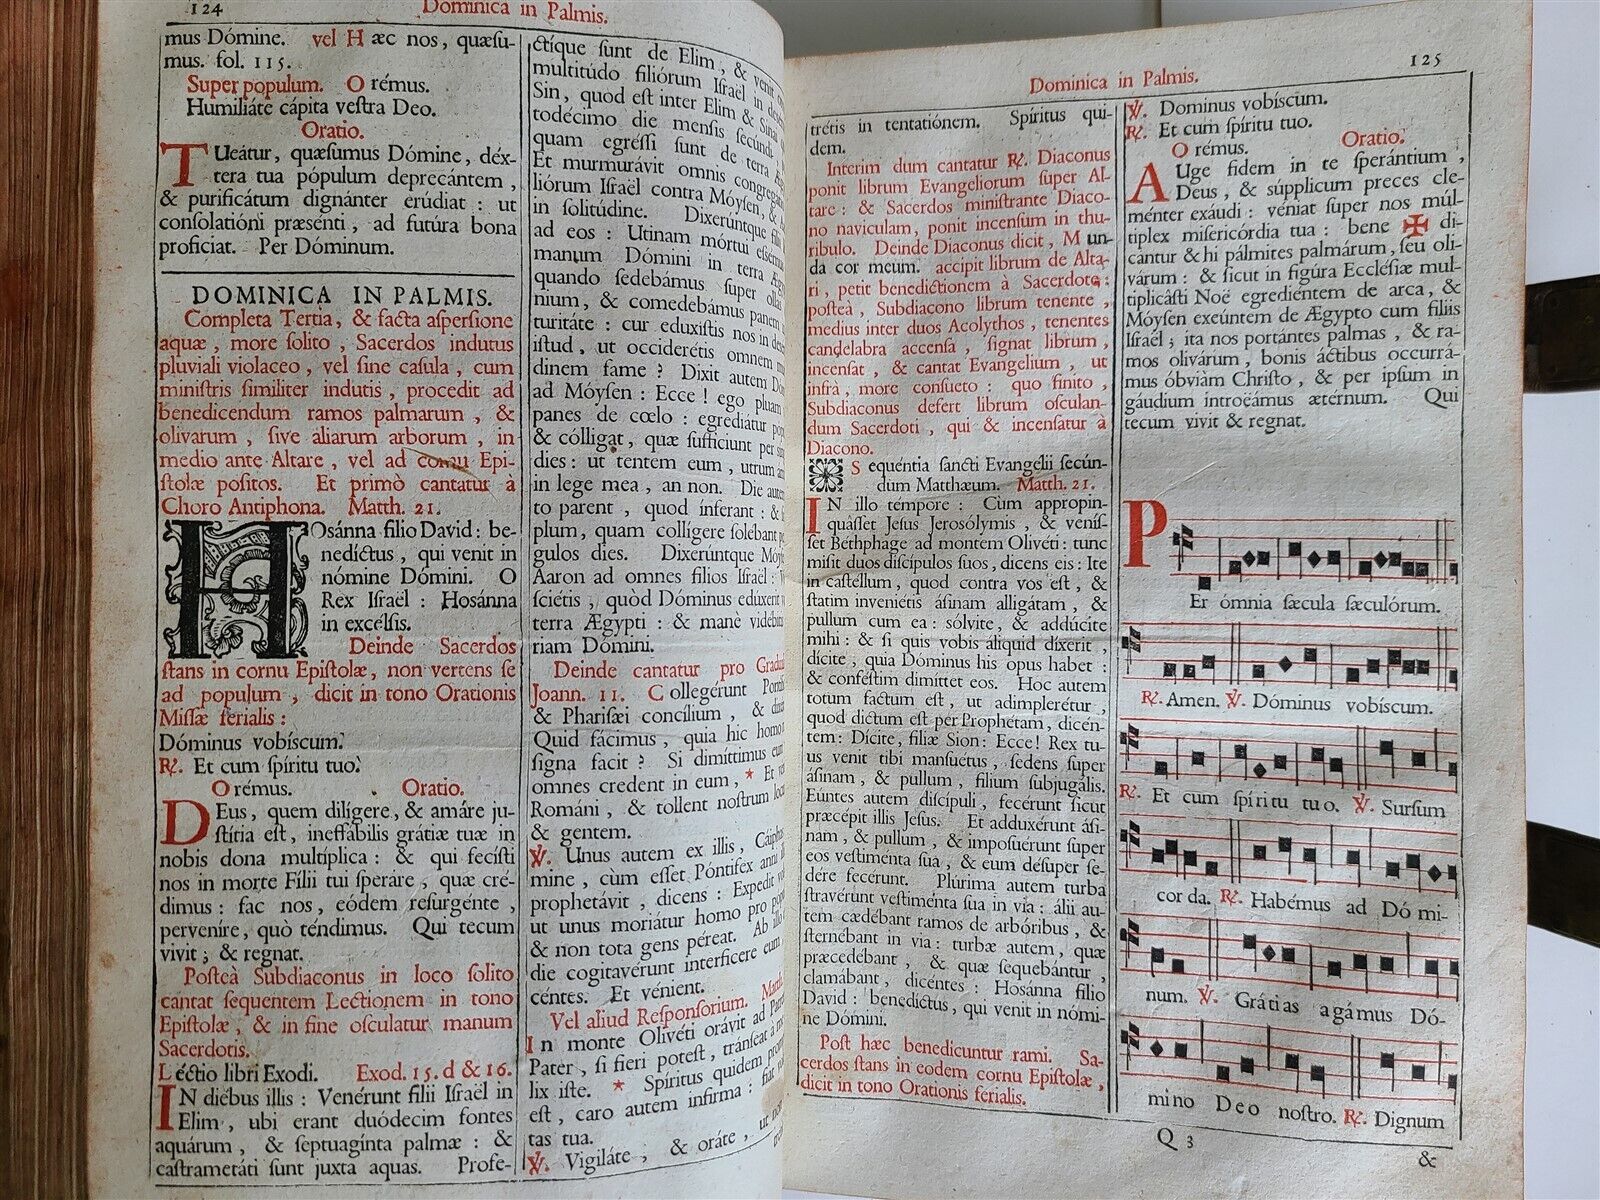 124
Dominica in Palmis.
mus Dómine. vel H æc nos, quæſu-
mus. fol. 115.
Super populum. O rémus.
Humiliáte cápita veſtra Deo.
Oratio.
TUeátur, quæſumus Dómine, déx-
tera tua pópulum deprecántem,
& purificátum dignánter erúdiat: ut
conſolatióni præſénti, ad futúra bona
proficiat. Per Dóminum.
DOMINICA IN PALMIS.
Completa Tertia, & facta aſperſione
aquæ, more ſolito, Sacerdos indutus
pluviali violaceo, vel ſine caſula, cum
miniſtris ſimiliter indutis, procedit ad
benedicendum ramos palmarum, &
olivarum, ſive aliarum arborum, in
medio ante Altare, vel ad cornu Epi-
ſtolæ poſitos. Et primò cantatur à
Choro Antiphona. Matth. 21.
HOsánna filio David: be-
nedíctus, qui venit in
nómine Dómini. O
Rex Iſraël: Hosánna
in excélſis.
Deinde Sacerdos
ſtans in cornu Epiſtolæ, non vertens ſe
ad populum, dicit in tono Orationis
Miſſæ ferialis:
Dóminus vobíscum.
℟. Et cum ſpíritu tuo.
O rémus. Oratio.
DEus, quem diligére, & amáre ju-
ſtítia eſt, ineffábilis grátiæ tuæ in
nobis dona multíplica: & qui feciſti
nos in morte Fílii tui ſperáre, quæ cré-
dimus: fac nos, eódem reſurgénte,
pervenire, quò téndimus. Qui tecum
vivit, & regnat.
Poſteà Subdiaconus in loco ſolito
cantat ſequentem Lectionem in tono
Epiſtolæ, & in fine oſculatur manum
Sacerdotis.
Léctio libri Exodi. Exod. 15. d & 16.
IN diébus illis: Venérunt filii Iſraël in
Elim, ubi erant duódecim fontes
aquárum, & ſeptuagínta palmæ: &
caſtrametáti ſunt juxta aquas. Profe-
ctíque ſunt de Elim, & venit
multitúdo filiórum Iſraël in
Sin, quod eſt inter Elim & Sinai
todécimo die menſis ſecúndi
quam egréſſi ſunt de terra
Et murmurávit omnis congregá
liórum Iſraël contra Móyſen, &
in ſolitúdine. Dixerúntque filii
ad eos: Utinam mórtui eſſémus
manum Dómini in terra Ægy
quando ſedebámus ſuper ollas
nium, & comedebámus panem
turitáte: cur eduxíſtis nos in
iſtud, ut occiderétis omnem
dinem fame? Dixit autem
ad Móyſen: Ecce! ego pluam
panes de cœlo: egrediátur
& cólligat, quæ ſufficiunt per
dies: ut tentem eum, utrum
in lege mea, an non. Die autem
to parent, quod inferant: &
plum, quam collígere ſolébant
gulos dies. Dixerúntque Móy
Aaron ad omnes filios Iſraël:
ſciétis, quòd Dóminus edúxerit
terra Ægypti: & manè vidébitis
riam Dómini.
Deinde cantatur pro Gradu
Joann. 11. C ollegérunt
& Phariſæi concílium, &
Quid fácimus, quia hic homo
ſigna facit? Si dimíttimus eum
omnes credent in eum, * Et
Románi, & tollent noſtrum
& gentem.
℣. Unus autem ex illis, Cáiphas
mine, cùm eſſet Póntifex anni
prophetávit, dicens: Expedit
ut unus moriátur homo pro
& non tota gens péreat. Ab illo
die cogitavérunt interfícere eum
céntes. Et vénient.
Vel aliud Reſponſorium. Matth.
In monte Olivéti orávit ad
Pater, ſi fieri poteſt, tránſeat à
lix iſte. * Spíritus quidem
eſt, caro autem infirma: fiat
tas tua.
℣. Vigiláte, & oráte, ut
Dominica in Palmis.
125
trétis in tentatiónem. Spíritus qui-
dem.
Interim dum cantatur ℟. Diaconus
ponit librum Evangeliorum ſuper Al-
tare: & Sacerdos miniſtrante Diaco-
no naviculam, ponit incenſum in thu-
ribulo. Deinde Diaconus dicit, M un-
da cor meum. accipit librum de Alta-
ri, petit benedictionem à Sacerdote:
poſteà, Subdiacono librum tenente,
medius inter duos Acolythos, tenentes
candelabra accenſa, ſignat librum,
incenſat, & cantat Evangelium, ut
infrà, more conſueto: quo finito,
Subdiaconus defert librum oſculan-
dum Sacerdoti, qui & incenſatur à
Diacono.
S equéntia ſancti Evangélii ſecún-
dum Matthæum. Matth. 21.
IN illo témpore: Cùm appropin-
quáſſet Jeſus Jeroſólymis, & veníſ-
ſet Béthphage ad montem Olivéti: tunc
miſit duos diſcípulos ſuos, dicens eis: Ite
in caſtéllum, quod contra vos eſt, &
ſtatim inveniétis áſinam alligátam, &
pullum cum ea: sólvite, & addúcite
mihi: & ſi quis vobis áliquid díxerit,
dícite, quia Dóminus his opus habet:
& conféſtim dimíttet eos. Hoc autem
totum factum eſt, ut adimplerétur,
quod dictum eſt per Prophétam, dicén-
tem: Dícite, filiæ Sion: Ecce! Rex tu-
us venit tibi manſuétus, ſedens ſuper
áſinam, & pullum, filium ſubjugális.
Eúntes autem diſcípuli, fecérunt ſicut
præcépit illis Jeſus. Et adduxérunt áſi-
nam, & pullum, & impoſuérunt ſuper
eos veſtiménta ſua, & eum déſuper ſe-
dére fecérunt. Plúrima autem turba
ſtravérunt veſtiménta ſua in via: álii au-
tem cædébant ramos de arbóribus, &
ſternébant in via: turbæ autem, quæ
præcedébant, & quæ ſequebántur,
clamábant, dicéntes: Hosánna filio
David: benedíctus, qui venit in nómi-
ne Dómini.
Poſt hæc benedicuntur rami. Sa-
cerdos ſtans in eodem cornu Epiſtolæ,
dicit in tono Orationis ferialis.
℣. Dominus vobíscum.
℟. Et cum ſpíritu tuo.
O rémus. Oratio.
AUge fidem in te ſperántium,
Deus, & súpplicum preces cle-
ménter exáudi: véniat ſuper nos múl-
tiplex miſericórdia tua: bene ✠ di-
cántur & hi pálmites palmárum, ſeu oli-
várum: & ſicut in figúra Eccléſiæ mul-
tiplicáſti Noë egrediéntem de arca, &
Móyſen exeúntem de Ægypto cum filiis
Iſraël; ita nos portántes palmas, & ra-
mos olivárum, bonis áctibus occurrá-
mus óbviàm Chriſto, & per ipſum in
gáudium introëámus ætérnum. Qui
tecum vivit & regnat.
PEr ómnia ſæcula ſæculórum.
℟. Amen. ℣. Dóminus vobíscum.
℟. Et cum ſpíritu tuo. ℣. Surſum
cor da. ℟. Habémus ad Dó mi-
num. ℣. Grátias agámus Dó-
mino Deo noſtro. ℟. Dignum
Q 3
&